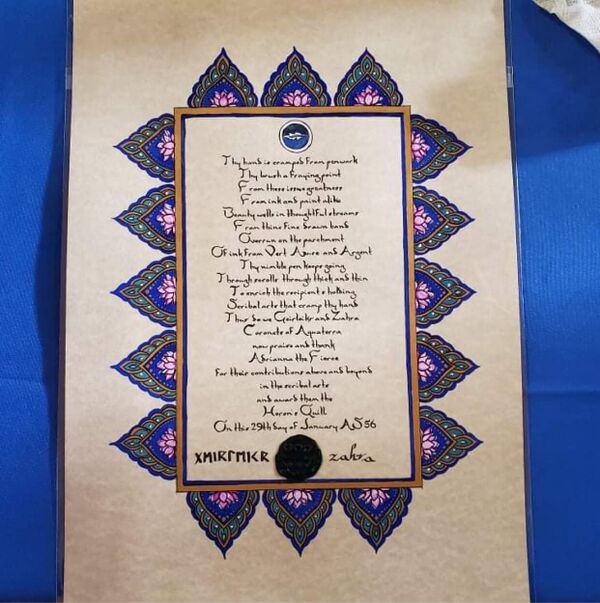 Thy hand is cramped from penwork
Thy brush a fraying point
From these issue greatness
From ink and paint alike
Beauty wells in thoughtful streams
From thine fine drawn hand
Overrun on the parchment
Of ink from Vert Azure and Argent
Thy nimble pen keeps going
Through scrolls through thick and thin
To enrich the recipient's
Scribal arts that cramp thy hand
Thus do we Geirleikr and Zahra
Coronets of Aquaterra
now praise and thank
Adrianna the Fierce
For their contributions above and beyond
in the scribal arts
and award them the
Heron's Quill
On this 29th day of January AS 56
ᚷᛖᛁᚱᛚᛖᛁᚲᚱ zahra